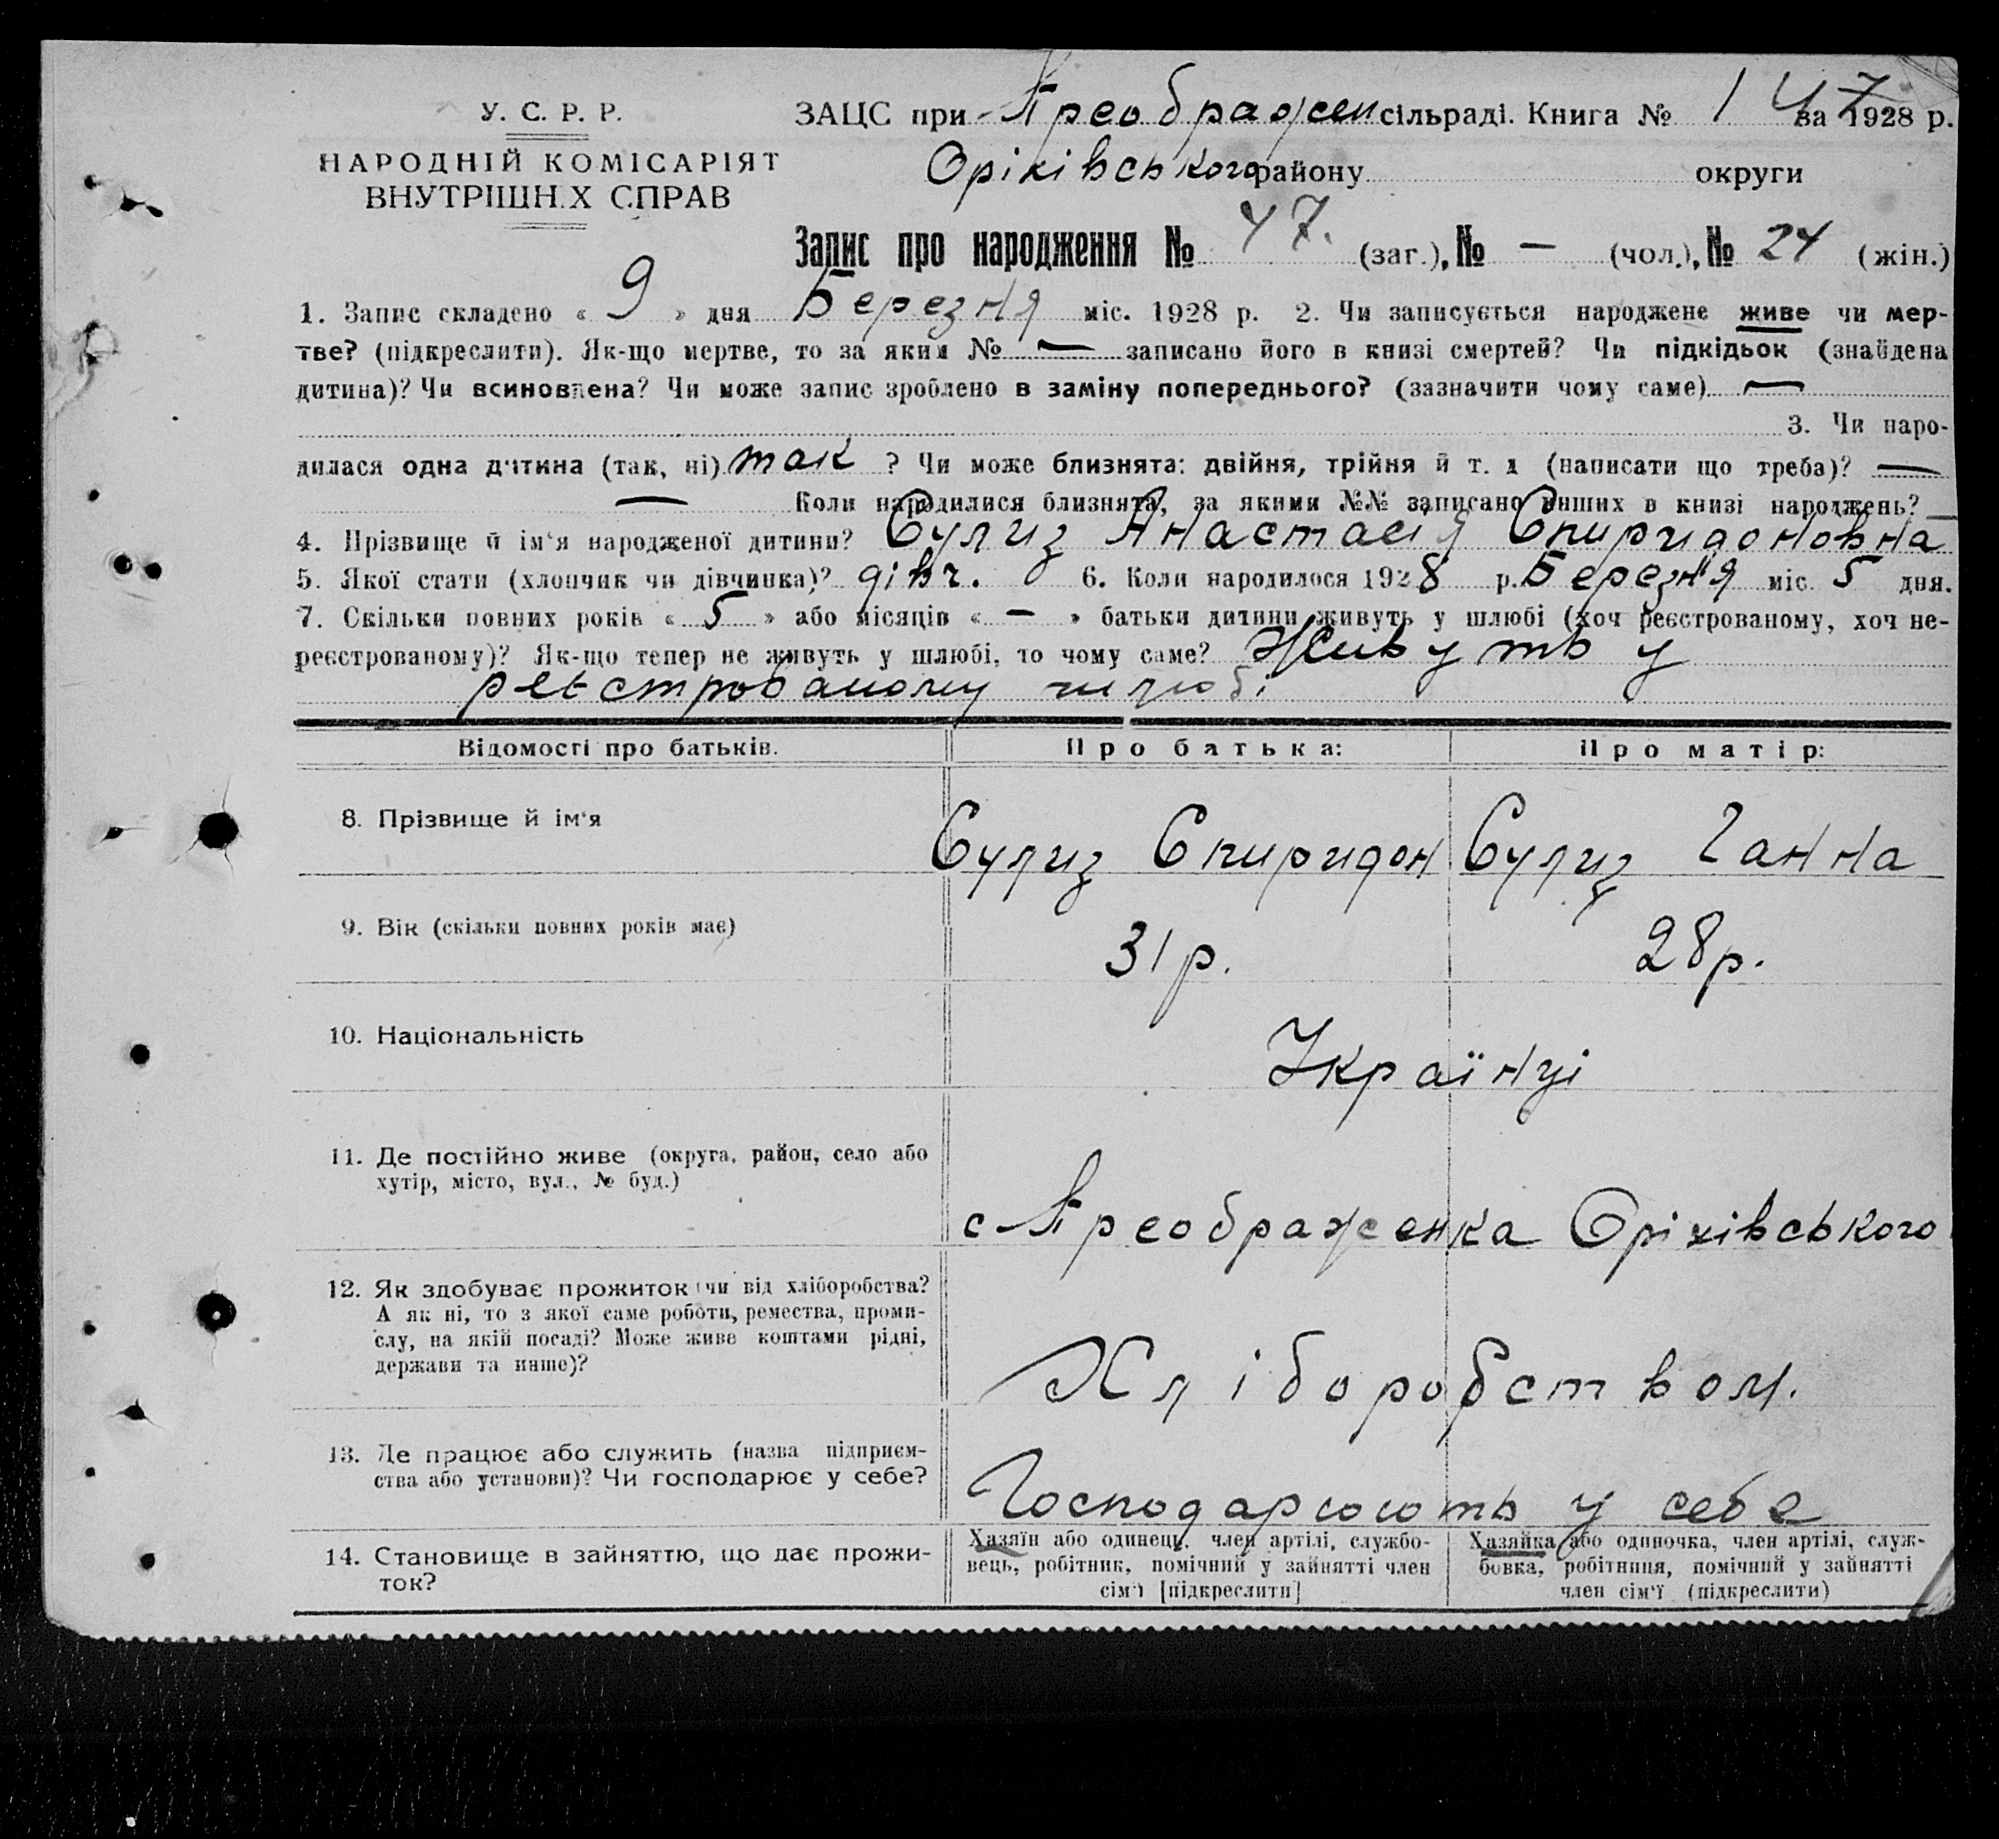 У. С. Р. Р.
НАРОДНІЙ КОМІСАРІЯТ
ВНУТРІШНІХ СПРАВ
ЗАЦС при Преображен сільраді. Книга № 1 за 1928 р.
47
Оріхівського району округи
Запис про народження № 47. (заг.), № — (чол.), № 24 (жін.)
1. Запис складено « 9 » дня Березня міс. 1928 р. 2. Чи записується народжене живе чи мер-
тве? (підкреслити). Як-що мертве, то за яким № — записано його в книзі смертей? Чи підкідьок (знайдена
дитина)? Чи всиновлена? Чи може запис зроблено в заміну попереднього? (зазначити чому саме) —
3. Чи наро-
дилася одна дитина (так, ні) так ? Чи може близнята: двійня, трійня й т. д (написати що треба)? —
— Коли народилися близнята, за якими №№ записано инших в книзі народжень? —
4. Прізвище й ім'я народженої дитини? Сулиз Анастасія Спиридоновна
5. Якої стати (хлопчик чи дівчинка)? дівч. 6. Коли народилося 1928 р. Березня міс. 5 дня.
7. Скільки повних років « 5 » або місяців « — » батьки дитини живуть у шлюбі (хоч реєстрованому, хоч не-
реєстрованому)? Як-що тепер не живуть у шлюбі, то чому саме? Живуть у
реєстрованому шлюбі
Відомості про батьків. Про батька: Про матір:
8. Прізвище й ім'я Сулиз Спиридон Сулиз Ганна
9. Вік (скільки повних років має) 31 р. 28 р.
10. Національність Українці
11. Де постійно живе (округа, район, село або
хутір, місто, вул., № буд.)
с Преображенка Оріхівського
12. Як здобуває прожиток (чи від хліборобства?
А як ні, то з якої саме роботи, ремества, проми-
слу, на якій посаді? Може живе коштами рідні,
держави та инше)?
Хліборобством.
13. Де працює або служить (назва підприєм-
ства або установи)? Чи господарює у себе?
Господарюють у себе
14. Становище в зайняттю, що дає прожи-
ток?
Хазяїн або одинець, член артілі, службо-
вець, робітник, помічний у зайнятті член
сім'ї [підкреслити]
Хазяйка або одиночка, член артілі, служ-
бовка, робітниця, помічний у зайнятті
член сім'ї (підкреслити)